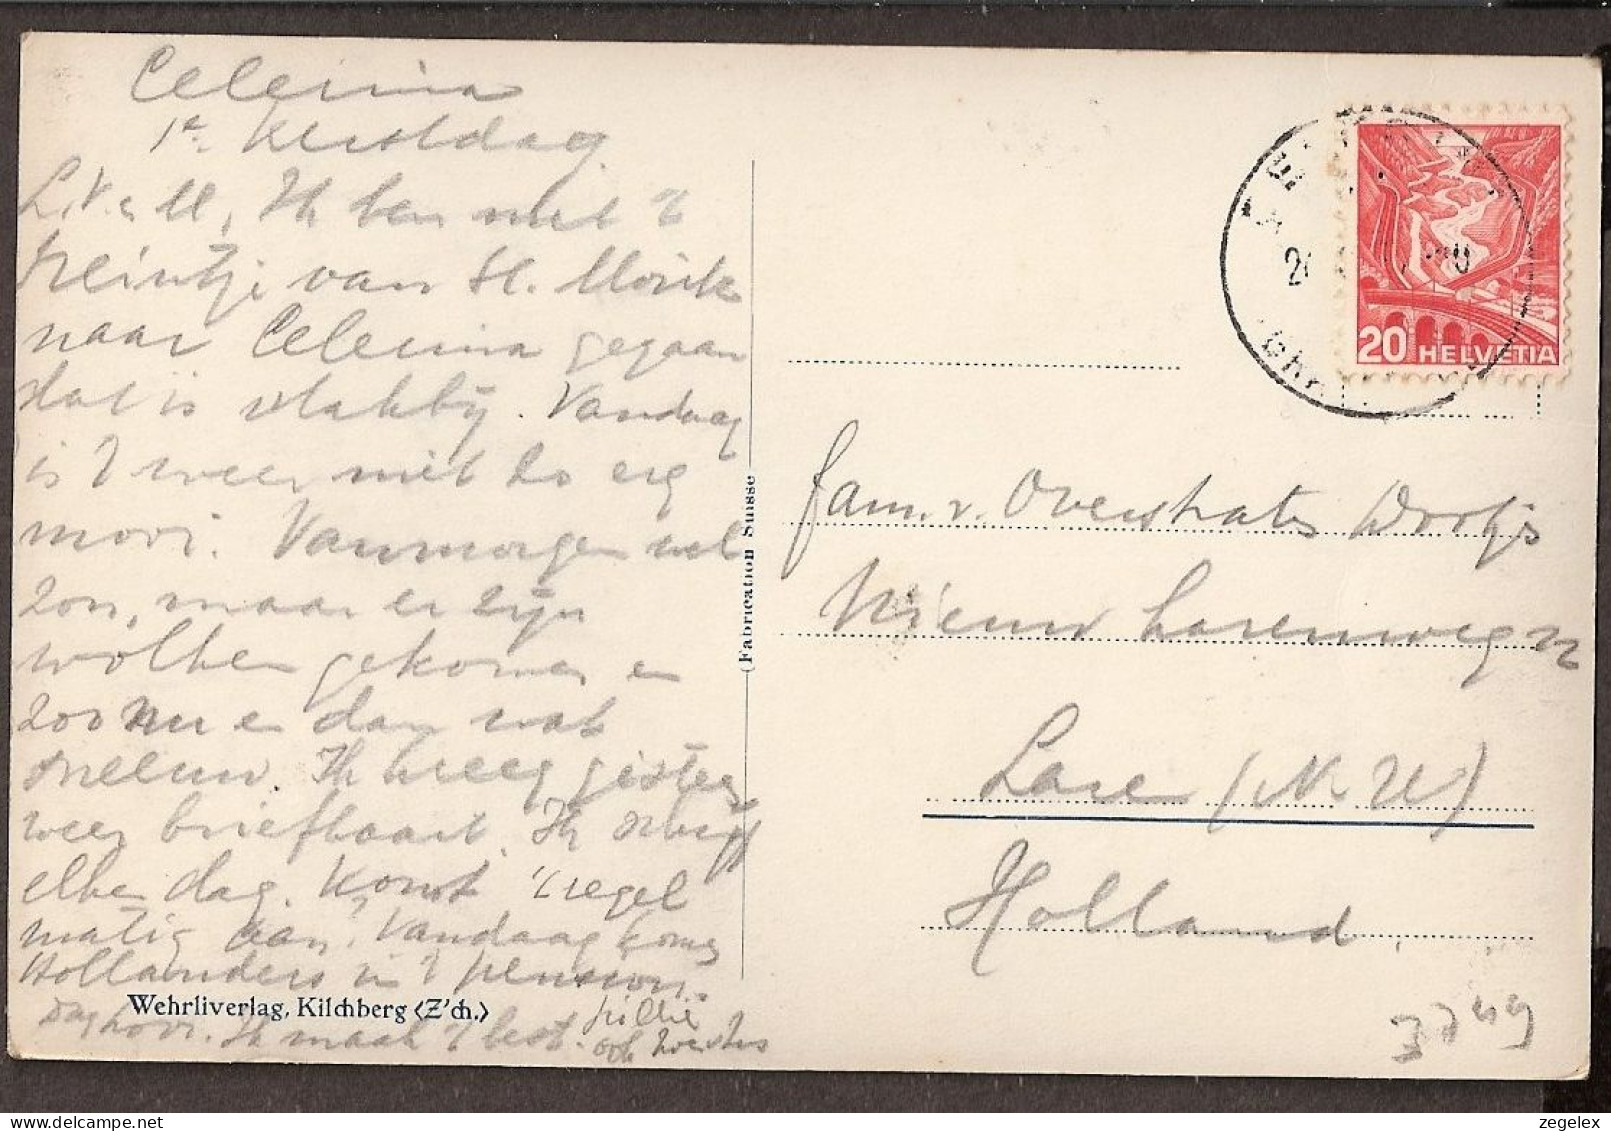 Celerina
1e Kerstdag
L.V. & M, Ik ben met 't
treintje van St. Moritz
naar Celerina gegaan
dat is vlakbij. Vandaag
is 't weer niet zo erg
mooi. Vanmorgen wel
zon, maar er zijn
wolken gekomen en
zoo nu en dan wat
sneeuw. Ik kreeg gisteren
weer briefkaart. Ik schrijf
elken dag. Komt 't regel
matig aan? Vandaag komen
Hollanders in 't pension.
Dag hoor. Ik maak 't best.
Wehrliverlag, Kilchberg (Z'ch.)
(Fabrication Suisse
20 HELVETIA
fam. v. Overstraten Wootjs
Nieuw Larenweg 72
Lare (N. H)
Holland.
3749